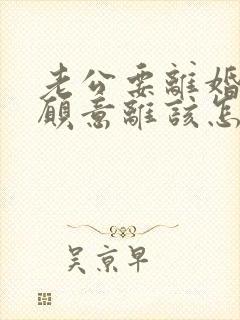 老公要離婚
願意離該怎
吳京早